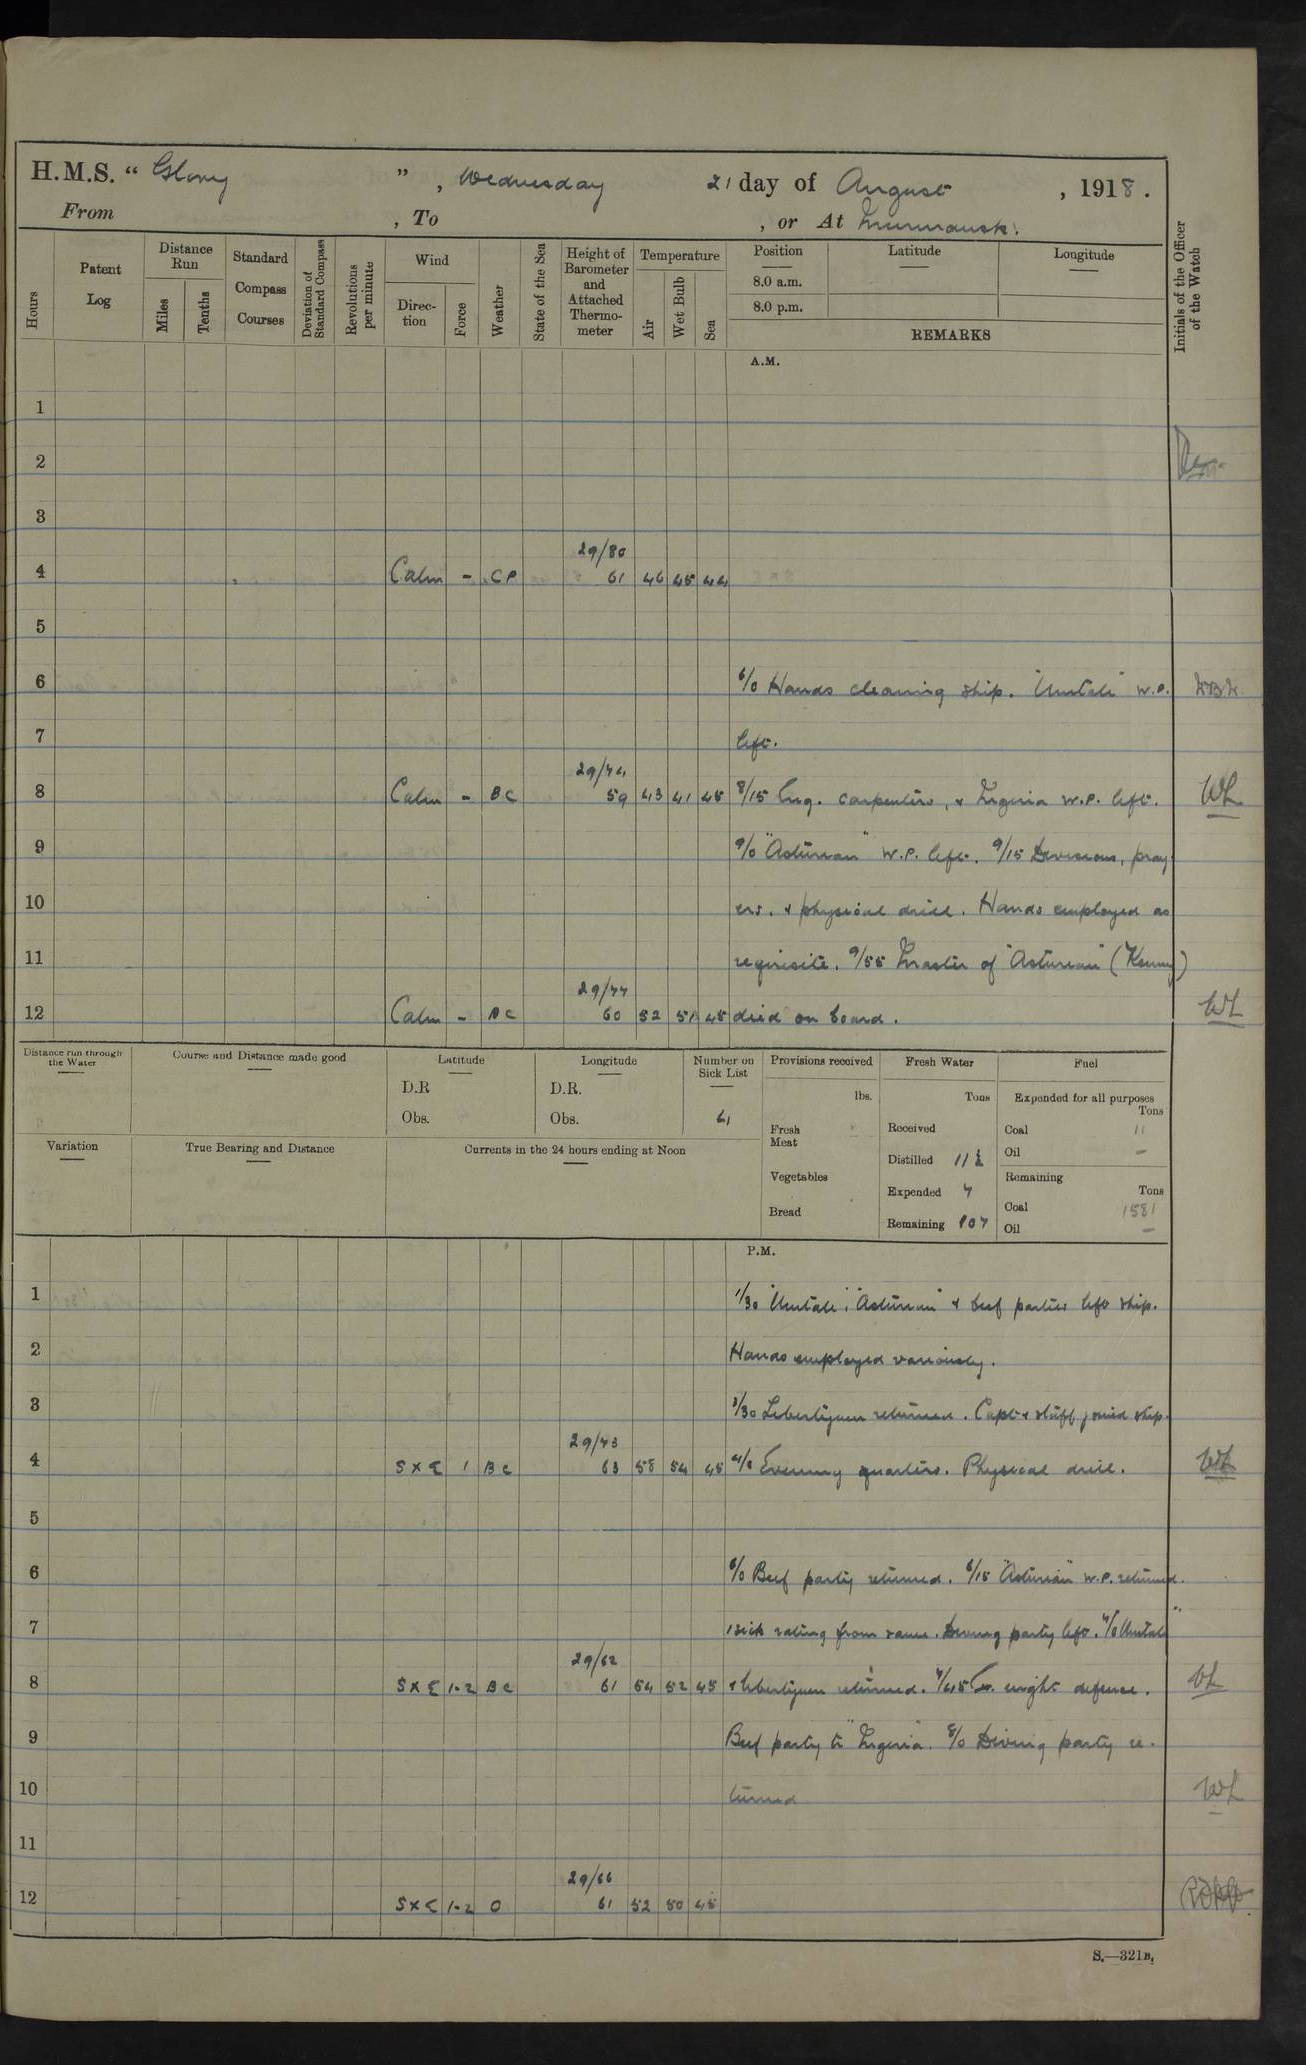 H.M.S. “ Glory ” , Wednesday 21 day of August , 1918 .
From , To , or At Murmansk.
Hours
Patent Log
Distance Run
Miles
Tenths
Standard Compass Courses
Deviation of Standard Compass
Revolutions per minute
Wind
Direc- tion
Force
Weather
State of the Sea
Height of Barometer and Attached Thermo- meter
Temperature
Air
Wet Bulb
Sea
Position
8.0 a.m.
8.0 p.m.
Latitude
Longitude
REMARKS
Initials of the Officer of the Watch
A.M.
1
2
3
29/80
4 Calm - CP 61 46 45 44
5
6 6/0 Hands cleaning ship. "Umtali" W.P.
7 left.
29/74
8 Calm - BC 59 43 41 45 8/15 Eng. carpenters, & Nigeria W.P. left. WL
9 9/0 "Asturian" W.P. left. 9/15 Divisions, pray
10 ers. & physical drill. Hands employed as
11 requisite. 9/55 Master of "Asturian" (Kenny)
29/77
12 Calm - BC 60 52 51 45 died on board. WL
Distance run through the Water
Course and Distance made good
Latitude
D.R
Obs.
Longitude
D.R.
Obs.
Number on Sick List
4
Provisions received
lbs.
Fresh Meat
Vegetables
Bread
Fresh Water
Tons
Received
Distilled 11½
Expended 7
Remaining 107
Fuel
Expended for all purposes
Tons
Coal 11
Oil -
Remaining
Tons
Coal 1581
Oil -
Variation
True Bearing and Distance
Currents in the 24 hours ending at Noon
P.M.
1 1/30 "Umtali", "Asturian" & beef parties left ship.
2 Hands employed variously.
3 3/30 Libertymen returned. Capt & staff joined ship.
29/73
4 SxE 1 BC 63 58 54 45 4/0 Evening quarters. Physical drill. WL
5
6 6/0 Beef party returned. 6/15 "Asturian" W.P. returned.
7 1 sick rating from same. Diving party left. 7/0 "Umtali"
29/62
8 SxE 1-2 BC 61 54 52 45 & libertymen returned. 7/45 Ex. night defence. WL
9 Beef party to "Nigeria". 8/0 Diving party re-
10 turned WL
11
29/66
12 SxE 1-2 O 61 52 50 45
S.—321B.